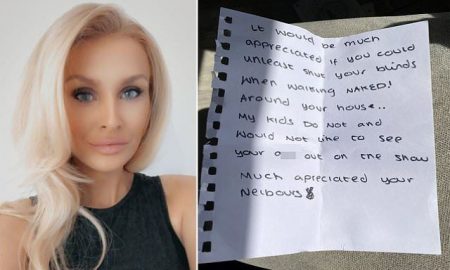 It would be much
appreciated if you could
unleast shut your blinds
when walking NAKED!
Around your house..
My kids Do Not and
Would Not like to see
your a out on the show
Much apreciated your
Neibours